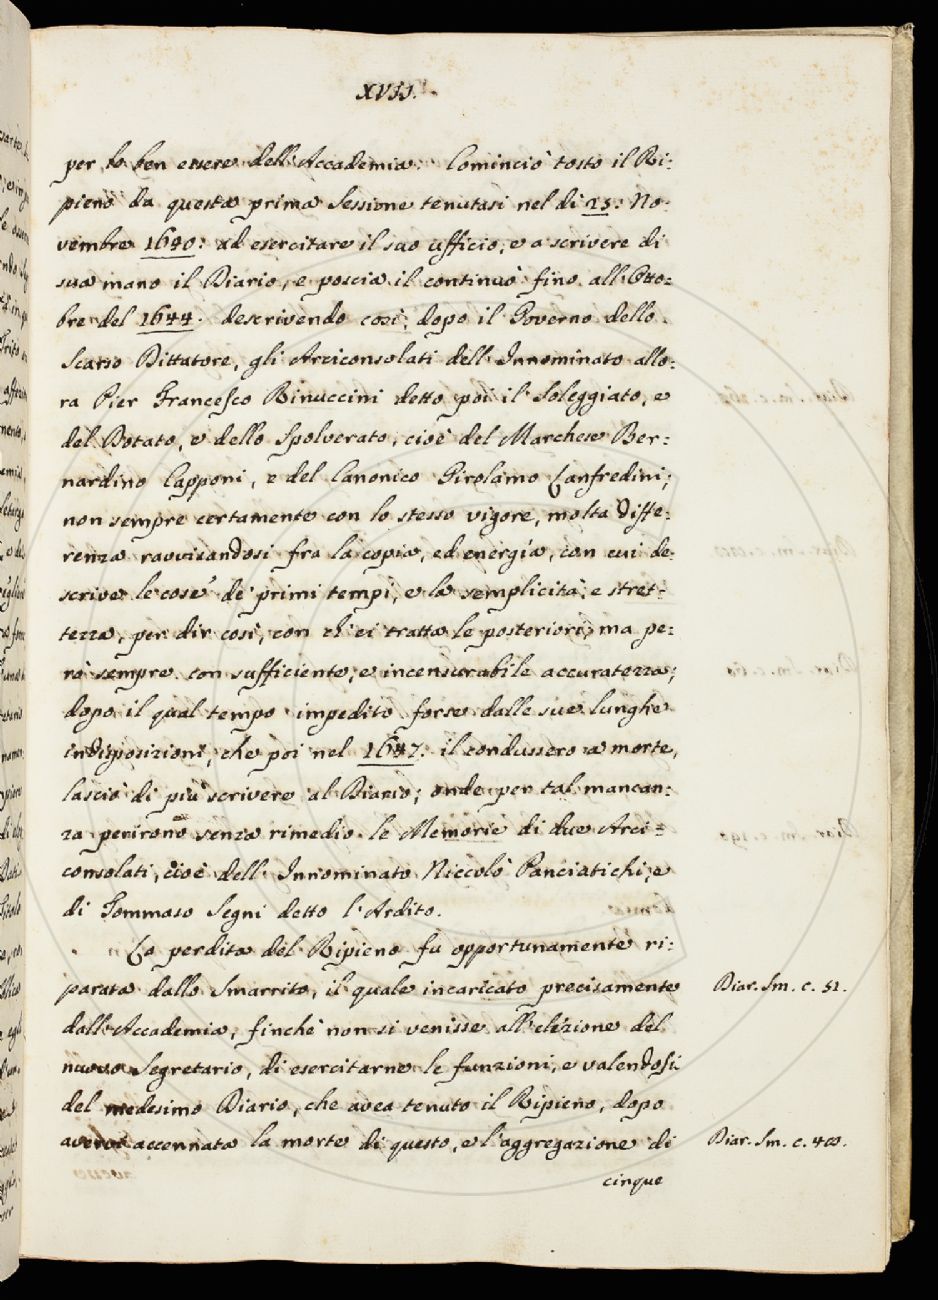 XVII.
per lo ben essere dell'Accademia. Cominciò tosto il Ri:
pieno da questa prima Sessione tenutasi nel di 25: No:
vembre 1640: ad esercitare il suo ufficio, e a scrivere di
sua mano il Diario, e poscia il continuò fino all'Otto:
bre del 1644. descrivendo così, dopo il Governo dello
Scarso Dittatore, gli Arciconsolati dell'Innominato allo:
ra Pier Francesco Rinuccini detto poi il Soleggiato, e
del Rotato, e dello Spolverato, cioè del Marchese Ber:
nardino Capponi, e del Canonico Girolamo Lanfredini;
non sempre certamente con lo stesso vigore, molta diffe:
renza ravvisandosi fra la copia, ed energia, con cui de:
scrive le cose de' primi tempi, e la semplicità, e stret:
tezza, per dir così, con ch'ei tratta le posteriori, ma pe:
rò sempre con sufficiente, e incensurabile accuratezza;
dopo il qual tempo impedito forse dalle sue lunghe
indisposizioni, che poi nel 1647: il condussero a morte,
lasciò di più scrivere al Diario; onde per tal mancan:
za perirono senza rimedio le Memorie di due Arci:
consolati, cioè dell'Innominato Niccolò Panciatichi, e
di Tommaso Segni detto l'Ardito.
La perdita del Ripieno fu opportunamente ri:
parata dallo Smarrito, il quale incaricato precisamente
Diar. Sm. c. 51.
dall'Accademia, finchè non si venisse all'elezione del
nuovo Segretario, di esercitarne le funzioni, e valendosi
del medesimo Diario, che avea tenuto il Ripieno, dopo
avere accennata la morte di questo, e l'aggregazione di
Diar. Sm. c. 40.
cinque